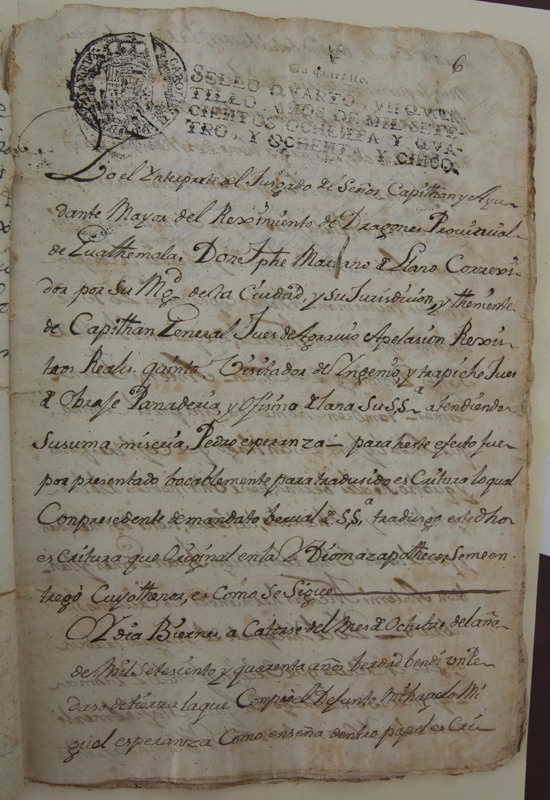 6
Un quartillo.
SELLO QVARTO, VN QVAR-
TILLO, AÑOS DE MIL SETE-
CIENTOS OCHENTA Y QVA-
TRO, Y OCHENTA Y CINCO.
Yo el Ynterprete del Jusgado del Señor Capithan y Ayu-
dante Mayor del Reximiento de Dragones Prouinsial
de Guathemala. Don Jphe Mariano de Llano Correxi-
dor por Su Md de esta Ciudad, y su Jurisdision, y theniente
de Capithan General Jues de Agrauio Apelasion Rexis-
tros Reals. quinto. Visitador de Yngenio, y trapiche Jues
de Obraje Panaderia, y Ofisina de lana Su SSa atendiendo
Su suma miseria, Pedro esperanza para hefte efeto fue
por presentado bocablemente para tradusido esCritura lo qual
Con presedente de mandato berual de SSa tradusgo este dho
esCritura que Original en la Ydioma zapotheco, Se me en
tregó Cuyo thenor, es Como Se Sigue
Oy dia Biernes, a Catorse del Mes de Octubre del año
de Mil Setesiento y quarenta años
de tierra la que Compró el Defunto, Mi Mi
guel esperanza Como enseña dentro papel esCri